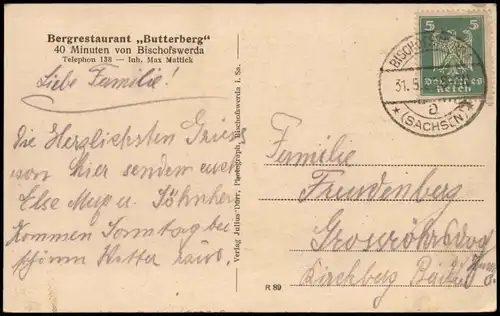 Bergrestaurant „Butterberg"
40 Minuten von Bischofswerda
Telephon 138 — Inh. Max Mattick
Liebe Familie!
Die Herzlichsten Grüße
von hier senden euch
Else Max u. Söhnchen
kommen Sonntag bei
schönem Wetter
Verlag Julius Dörr, Photograph, Bischofswerda i. Sa.
R 89
5 5
Deutsches
Reich
31.5.
a
*(SACHSEN)*
Familie
Freudenberg
Grossröhrsdorf
Kirchberg